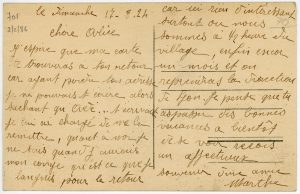 le Dimanche 17-8.24
chère Orlie
J'espère que ma carte
te trouvera à ton retour
car ayant perdu ton adresse
je ne pouvais t'écrire alors
sachant qu'
qui se charge de me la
remettre, quant à moi je
ne sais quand j'aurais
mon congé qu'est ce que je
languis pour le retour
car ici rien d'intéressant
surtout ou nous
sommes à ½ heure du
village, enfin encor
un mois et on
reprendra la direction
de Lyon. Je pense que tu
as passer des bonnes
vacances a bientôt
de te voir reçois
un affectueux
souvenir d'une amie
Marthe